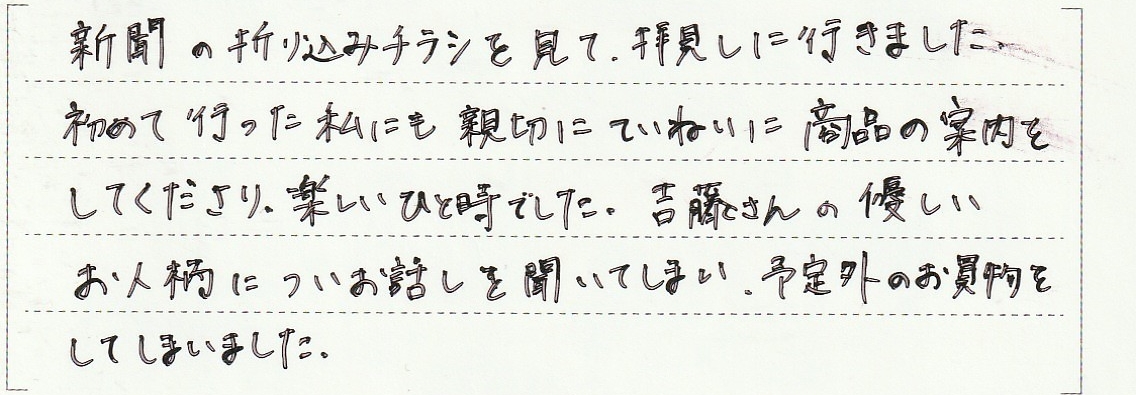 新聞の折り込みチラシを見て、拝見しに行きました、
初めて行った私にも親切にていねいに商品の案内を
してくださり、楽しいひと時でした。吉藤さんの優しい
お人柄についお話しを聞いてしまい、予定外のお買物を
してしまいました。